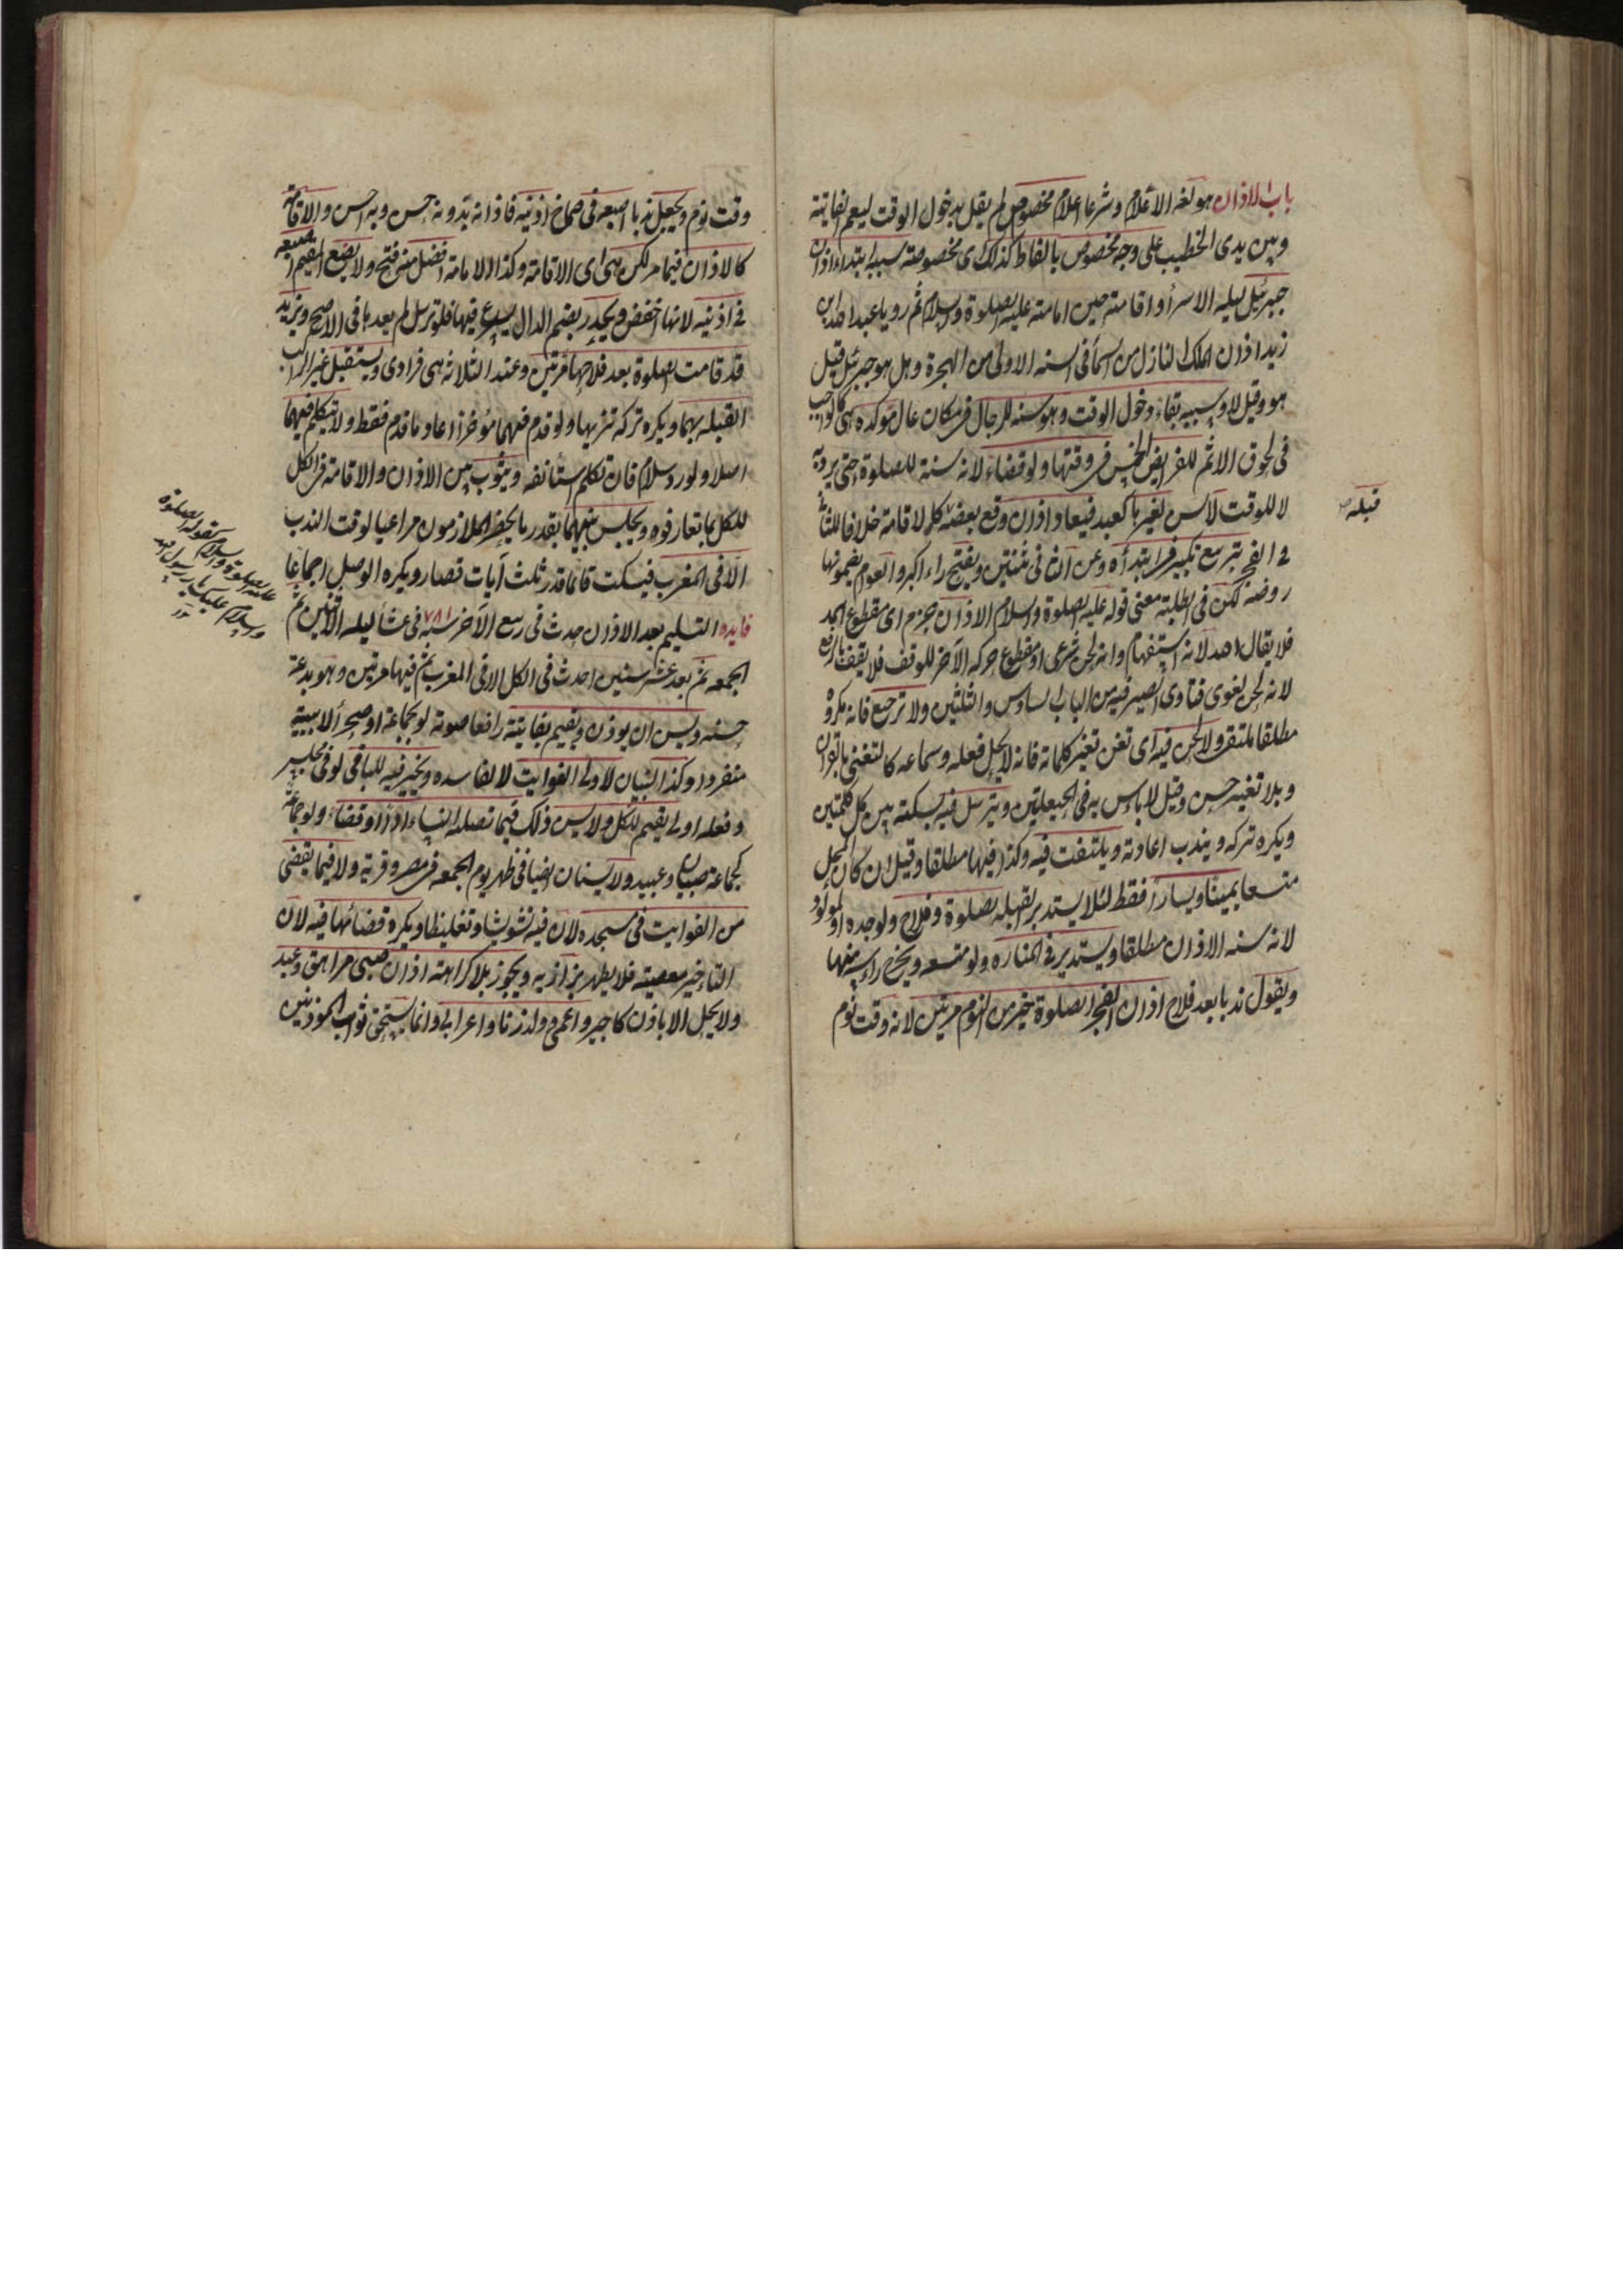 باب الاذان هو لغة الاعلام وشرعا اعلام مخصوص لم يقل بدخول الوقت ليعم الفايتة
وبين يدى الخطيب على وجه مخصوص بالفاظ كذلك اى مخصوصة سببه ابتداء اذان
جبرئيل ليلة الاسرأ واقامته حين امامته عليه الصلوة والسلام ثم رويا عبد الله ابن
زيد اذان الملك النازل من السمأ فى السنه الاولى من الهجرة وهل هو جبرئيل قيل
هو وقيل لا وسببه بقاء دخول الوقت وهو سنه للرجال فى مكان عال موكده هى كالواجب
فى لحوق الاثم للفرايض الخمس فى وقتها ولو قضاء لانه سنة للصلوة حتى يبرد به
لا للوقت لا يسن لغيرها كعيد فيعاد اذان وقع بعضه كالاقامة خلافا للثانى
فى الفجر بتربيع تكبير فى ابتدأه وعن الثانى ثنتين وبفتح راء اكبر والعوام يضمونها
روضه لكن فى الطلبة معنى قوله عليه الصلوة والسلام الاذان جزم اى مقطوع المد
فلا يقال الله لانه استفهام وانه لحن شرعى او مقطوع حركه الآخر للوقف فلا يقف بالرفع
لانه لحن لغوى فتاوى الصيرفيه من الباب السادس والثلثين ولا ترجيع فانه مكروه
مطلقا ملتقى ولا لحن فيه اى تغنى تغير كلماته فانه لا يحل فعله وسماعه كالتغنى بالقران
وبلا تغيير حسن وقيل لا باس به فى الحيعلتين ويترسل فيه بسكتة بين كل كلمتين
ويكره تركه ويندب اعادته ويلتفت فيه وكذا فيها مطلقا وقيل ان كان المحل
متسعا يمينا ويسارا فقط لئلا يستدبر القبله بصلوة وفلاح ولو وحده او لمولود
لانه سنه الاذان مطلقا ويستدير فى المناره ولو متسعه ويخرج راسه منها
ويقول ندبا بعد فلاح اذان الفجر الصلوة خير من النوم مرتين لانه وقت نوم
قبله
وقت نوم ويجعل ندبا اصبعه فى صماخ اذنيه فاذانه بدونه حسن وبه احسن والاقامة
كالاذان فيما مر لكن هى اى الاقامة وكذا الامامة افضل منه فتح ولا يضع المقيم اصبعه
فى اذنيه لانها اخفض ويحدر بضم الدال يسرع فيها فلو ترسل لم يعدها فى الاصح ويزيد
قد قامت الصلوة بعد فلاحها مرتين وعند الثلاثه هى فرادى ويستقبل غير الراكب
القبله بهما ويكره تركه تنزيها ولو قدم فيهما مؤخرا اعاد ما قدم فقط ولا يتكلم فيهما
اصلا ولو رد سلام فان تكلم استأنفه ويثوب بين الاذان والاقامة فى الكل
للكل بما تعارفوه ويجلس بينهما بقدر ما يحضر الملازمون مراعيا لوقت الندب
الا فى المغرب فيسكت قائما قدر ثلث آيات قصار ويكره الوصل اجماعا
فايده التسليم بعد الاذان حدث فى ربيع الآخر سنه ٧٨١ فى عشأ ليله الاثنين ثم
الجمعه ثم بعد عشر سنين احدث فى الكل الا فى المغرب ثم فيها مرتين وهو بدعة
حسنه ويسن ان يوذن ويقيم لفايتة رافعا صوته لو بجماعة او صحرأ لا ببيته
منفردا وكذا يسنان لاولى الفوايت لا لفاسده ويخير فيه للباقى لو فى مجلس
وفعله اولى ويقيم للكل ولا يسن ذلك فيما تصليه النساء اداء وقضاء ولو جماعة
كجماعة صبيان وعبيد ولا يسنان ايضا فى ظهر يوم الجمعه فى مصر وقرية ولا فيما يقضى
من الفوايت فى مسجده لان فيه تشويشا وتغليظا ويكره قضائها فيه لان
التاخير معصيته فلا يظهر بزازيه ويجوز بلا كراهته اذان صبى مراهق وعبد
ولا يحل الا باذن كاجير واعمى وولد زنا واعرابى وانما يستحق ثواب الموذنين
كقوله الصلوة
عليه الصلوة والسلام
والسلام عليك يا رسول الله